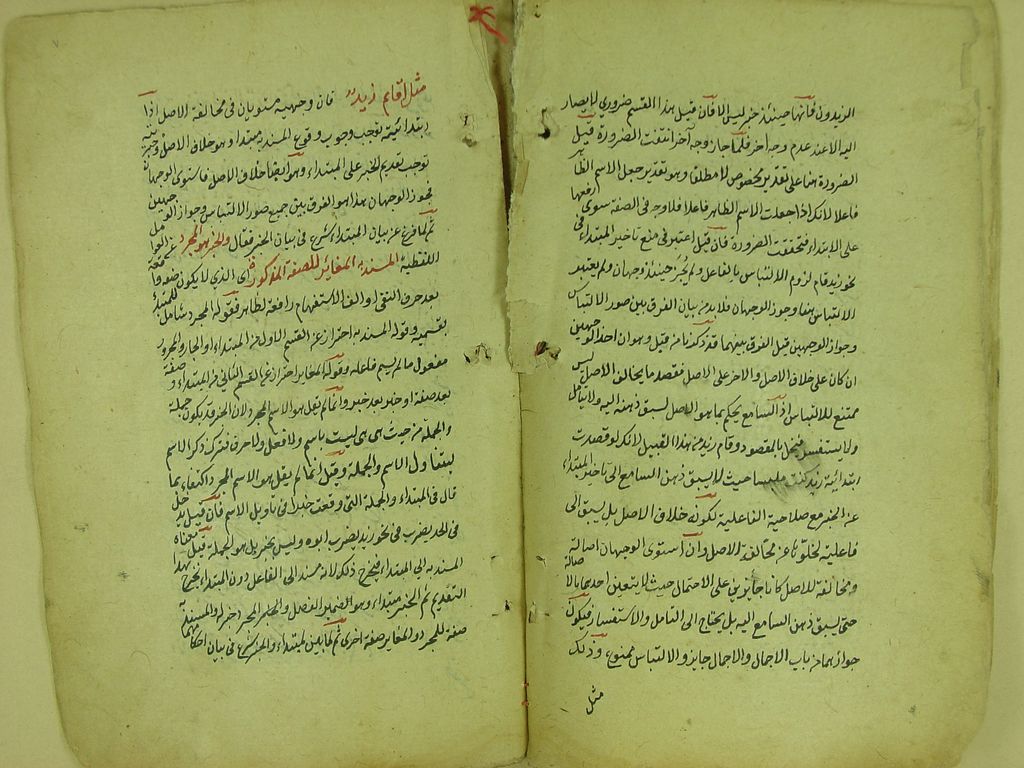 الزيدون فانها حينئذ خبر ليس الا فان قيل هذا القسم ضروري لا يصار
اليه الا عند عدم وجه آخر فلما جاز وجه آخر انتفت الضرورة قيل
الضرورة هنا على تقدير مخصوص لا مطلقا وهو تقدير جعل الاسم الظا
فاعلا لانك اذا جعلت الاسم الظاهر فاعلا فلا وجه في الصفة سوى رفعها
على الابتداء فتحققت الضرورة فان قيل اعتبر في منع تاخير المبتداء في
نحو زيد قام لزوم الالتباس بالفاعل ولم يجز حينئذ وجهان ولم يعتبر
الالتباس هنا وجوز الوجهان فلا بد من بيان الفرق بين صور الالتباس
وجواز الوجهين قيل الفرق بينهما قد ذكرنا من قبل وهو ان احد الوجهين
ان كان على خلاف الاصل والاخر على الاصل فقصد ما يخالف الاصل ليس
ممتنع للالتباس اذ السامع يحكم بما هو الاصل لسبق ذهنه اليه ولا يتامل
ولا يستفسر فيخل بالمقصود وقام زيد من هذا القبيل لانك لو قصدت
ابتدائية زيد كنت ملبسا حيث لا يسبق ذهن السامع الى تاخير المبتداء
عن الخبر مع صلاحية الفاعلية لكونه خلاف الاصل بل يسبق الى
فاعلية لخلوّها عن مخالفة الاصل وان استوى الوجهان اصالة
ومخالفة للاصل كانا جايزين على الاحتمال حيث لا يتعين احدهما بالاصالة
حتى يسبق ذهن السامع اليه بل يحتاج الى التامل والاستفسار فيكون
جوازهما من باب الاجمال والاجمال جايز والالتباس ممنوع وذلك
مثل
مثل اقايم زيد فان وجهيه مستويان في مخالفة الاصل اذا
ابتدائيته توجب وجوب وقوع المسند مبتداء وهو خلاف الاصل وخبريته
توجب تقديم الخبر على المبتداء وهو ايضا خلاف الاصل فاستوى الوجهان
فجوز الوجهان هذا هو الفرق بين جميع صور الالتباس وجواز الوجهين
ثم لما فرغ عن بيان المبتداء شرع في بيان الخبر فقال والخبر هو المجرد عن العوامل
اللفظية المسند به المغاير للصفة المذكورة اي الذي لا يكون صفة واقعة
بعد حرف النفي او الف الاستفهام رافعة لظاهر فقوله المجرد شامل للمبتدأ
بقسميه وقوله المسند به احتراز عن القسم الاول من المبتداء او الجار والمجرور
مفعول ما لم يسم فاعله وقوله المغاير احتراز عن القسم الثاني من المبتداء و صفة
بعد صفة او خبر بعد خبر وانما لم يقل هو الاسم المجرد لان الخبر قد يكون جملة
والجملة من حيث هي هي ليست باسم ولا فعل ولا حرف فترك ذكر الاسم
ليتناول الاسم والجملة وقيل انما لم يقل هو الاسم المجرد اكتفاء بما
قال في المبتداء والجملة التي وقعت خبرا في تاويل الاسم فان قيل يدخل
في الحد يضرب في نحو زيد يضرب ابوه وليس بخبر بل هو الجملة قيل معناه
المسند به الى المبتداء فيخرج ذلك لانه مسند الى الفاعل دون المبتداء فيخرج بهذا
التقديم ثم الخبر مبتداء وهو الضمير الفصل والخبر المجرد خبره والمسند به
صفة للمجرد والمغاير صفة اخرى ثم لما بين المبتداء والخبر شرع في بيان احكامهما